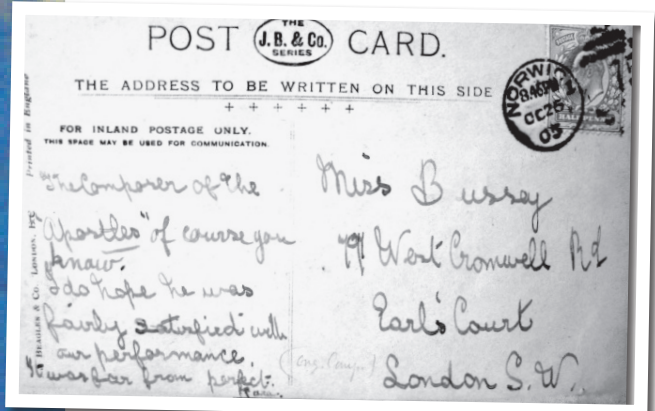 POST THE J.B. & Co. SERIES CARD.
THE ADDRESS TO BE WRITTEN ON THIS SIDE
+ + + + + +
NORWICH
8.45PM
OC 26
05
HALFPENNY
FOR INLAND POSTAGE ONLY.
THIS SPACE MAY BE USED FOR COMMUNICATION.
Printed in England
BEAGLES & Co. LONDON, E.C.
"The Composer of the
Apostles" of course you
know.
I do hope he was
fairly satisfied with
our performance.
It was far from perfect.
Miss Bussey
79 West Cromwell Rd
Earl's Court
London S.W.